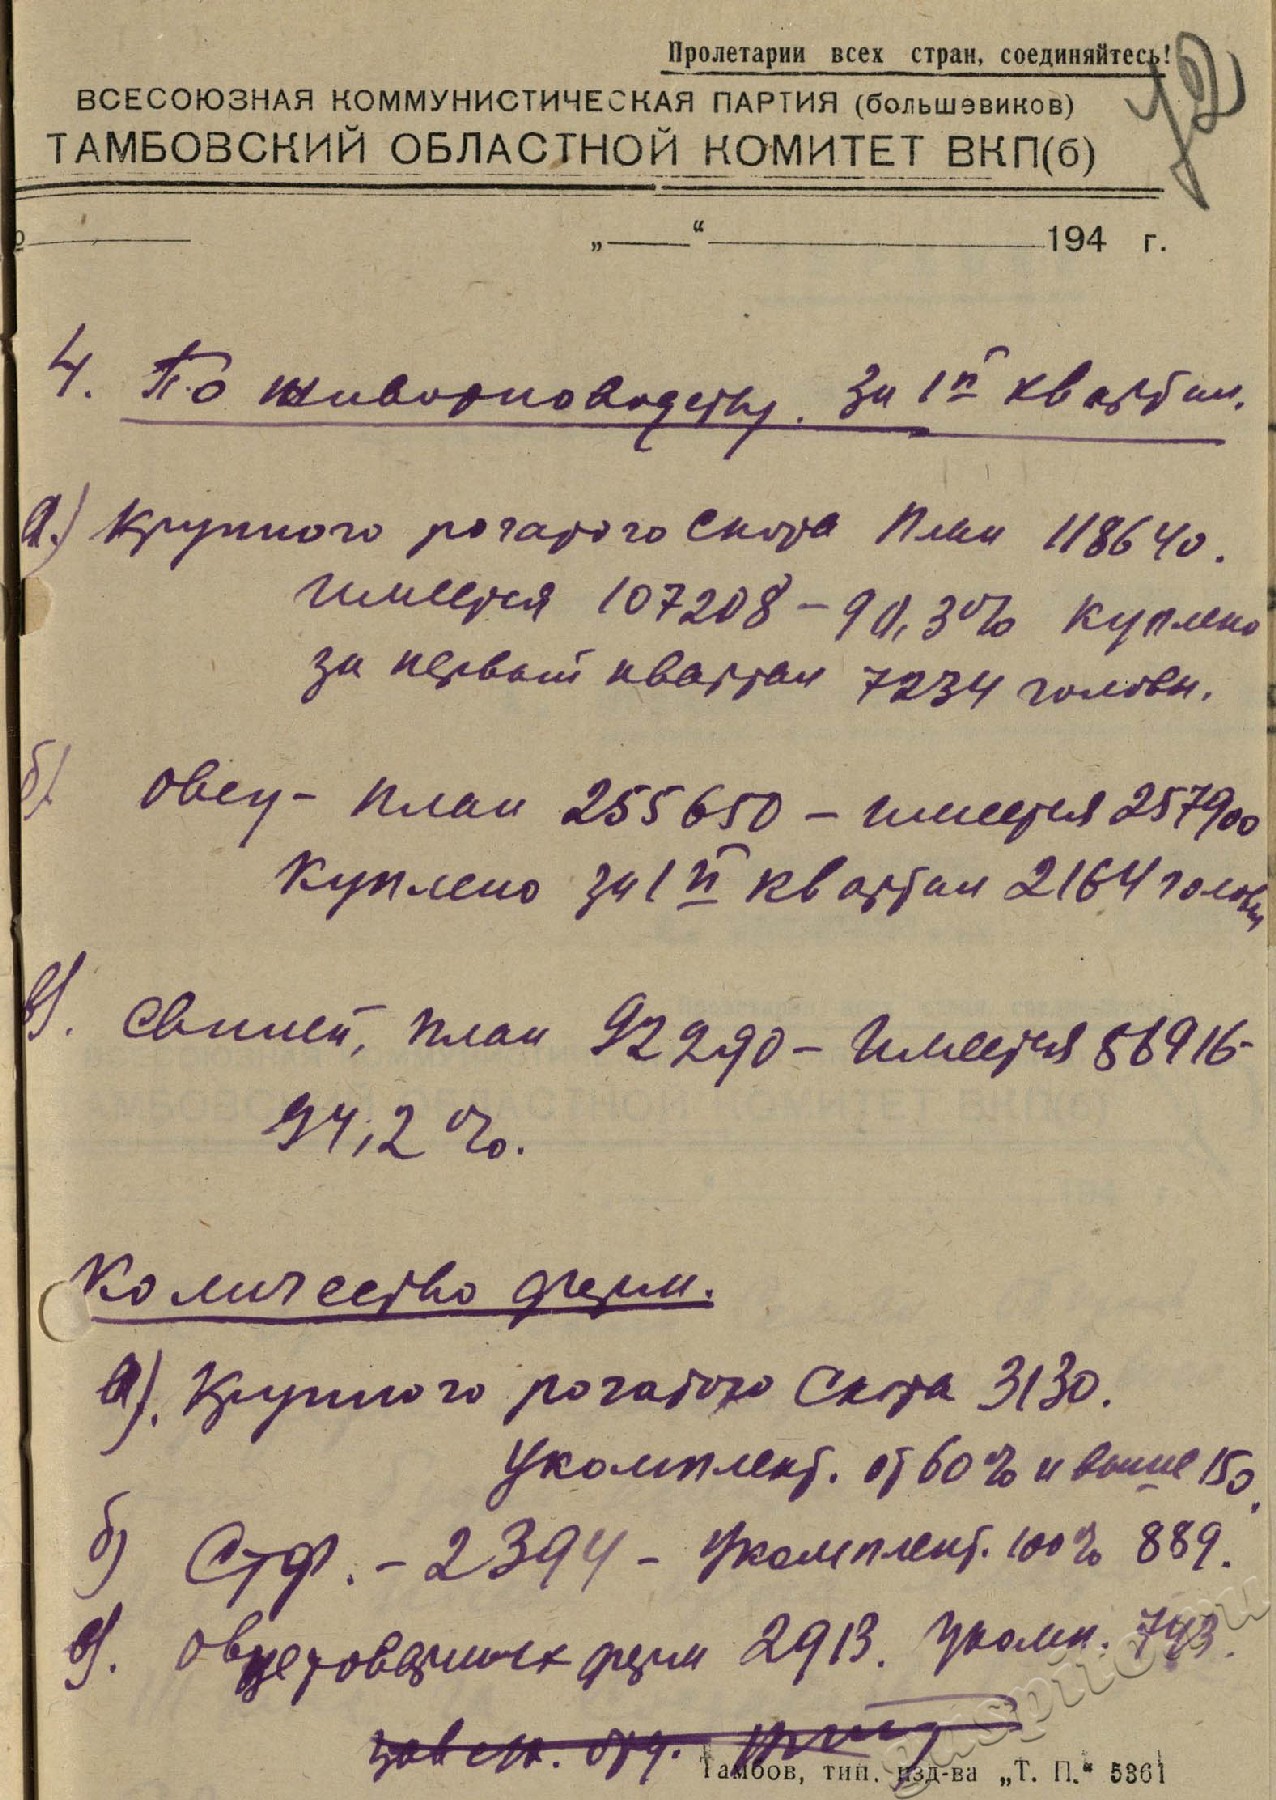 Пролетарии всех стран, соединяйтесь!
ВСЕСОЮЗНАЯ КОММУНИСТИЧЕСКАЯ ПАРТИЯ (большевиков)
ТАМБОВСКИЙ ОБЛАСТНОЙ КОМИТЕТ ВКП(б)
„ “ 194 г.
4. По животноводству. за 1й квартал.
а.) Крупного рогатого скота План 118640.
имеется 107208 – 90,3% куплено
за первый квартал 7234 головы.
б) овец – план 255650 – имеется 257900
Куплено за 1й квартал 2164 головы
в). Свиней, план 92290 – имеется 86916 –
94,2%.
Количество ферм.
а). Крупного рогатого скота 3130.
Укомплект. от 60% и выше 150.
б) СТФ. – 2394 – Укомплект. 100% 889.
в). овцетоварных ферм 2913. Укомп. 743.
зав с/х. отд.
Тамбов, тип. изд-ва „Т. П.“ 5361
gaspito.ru